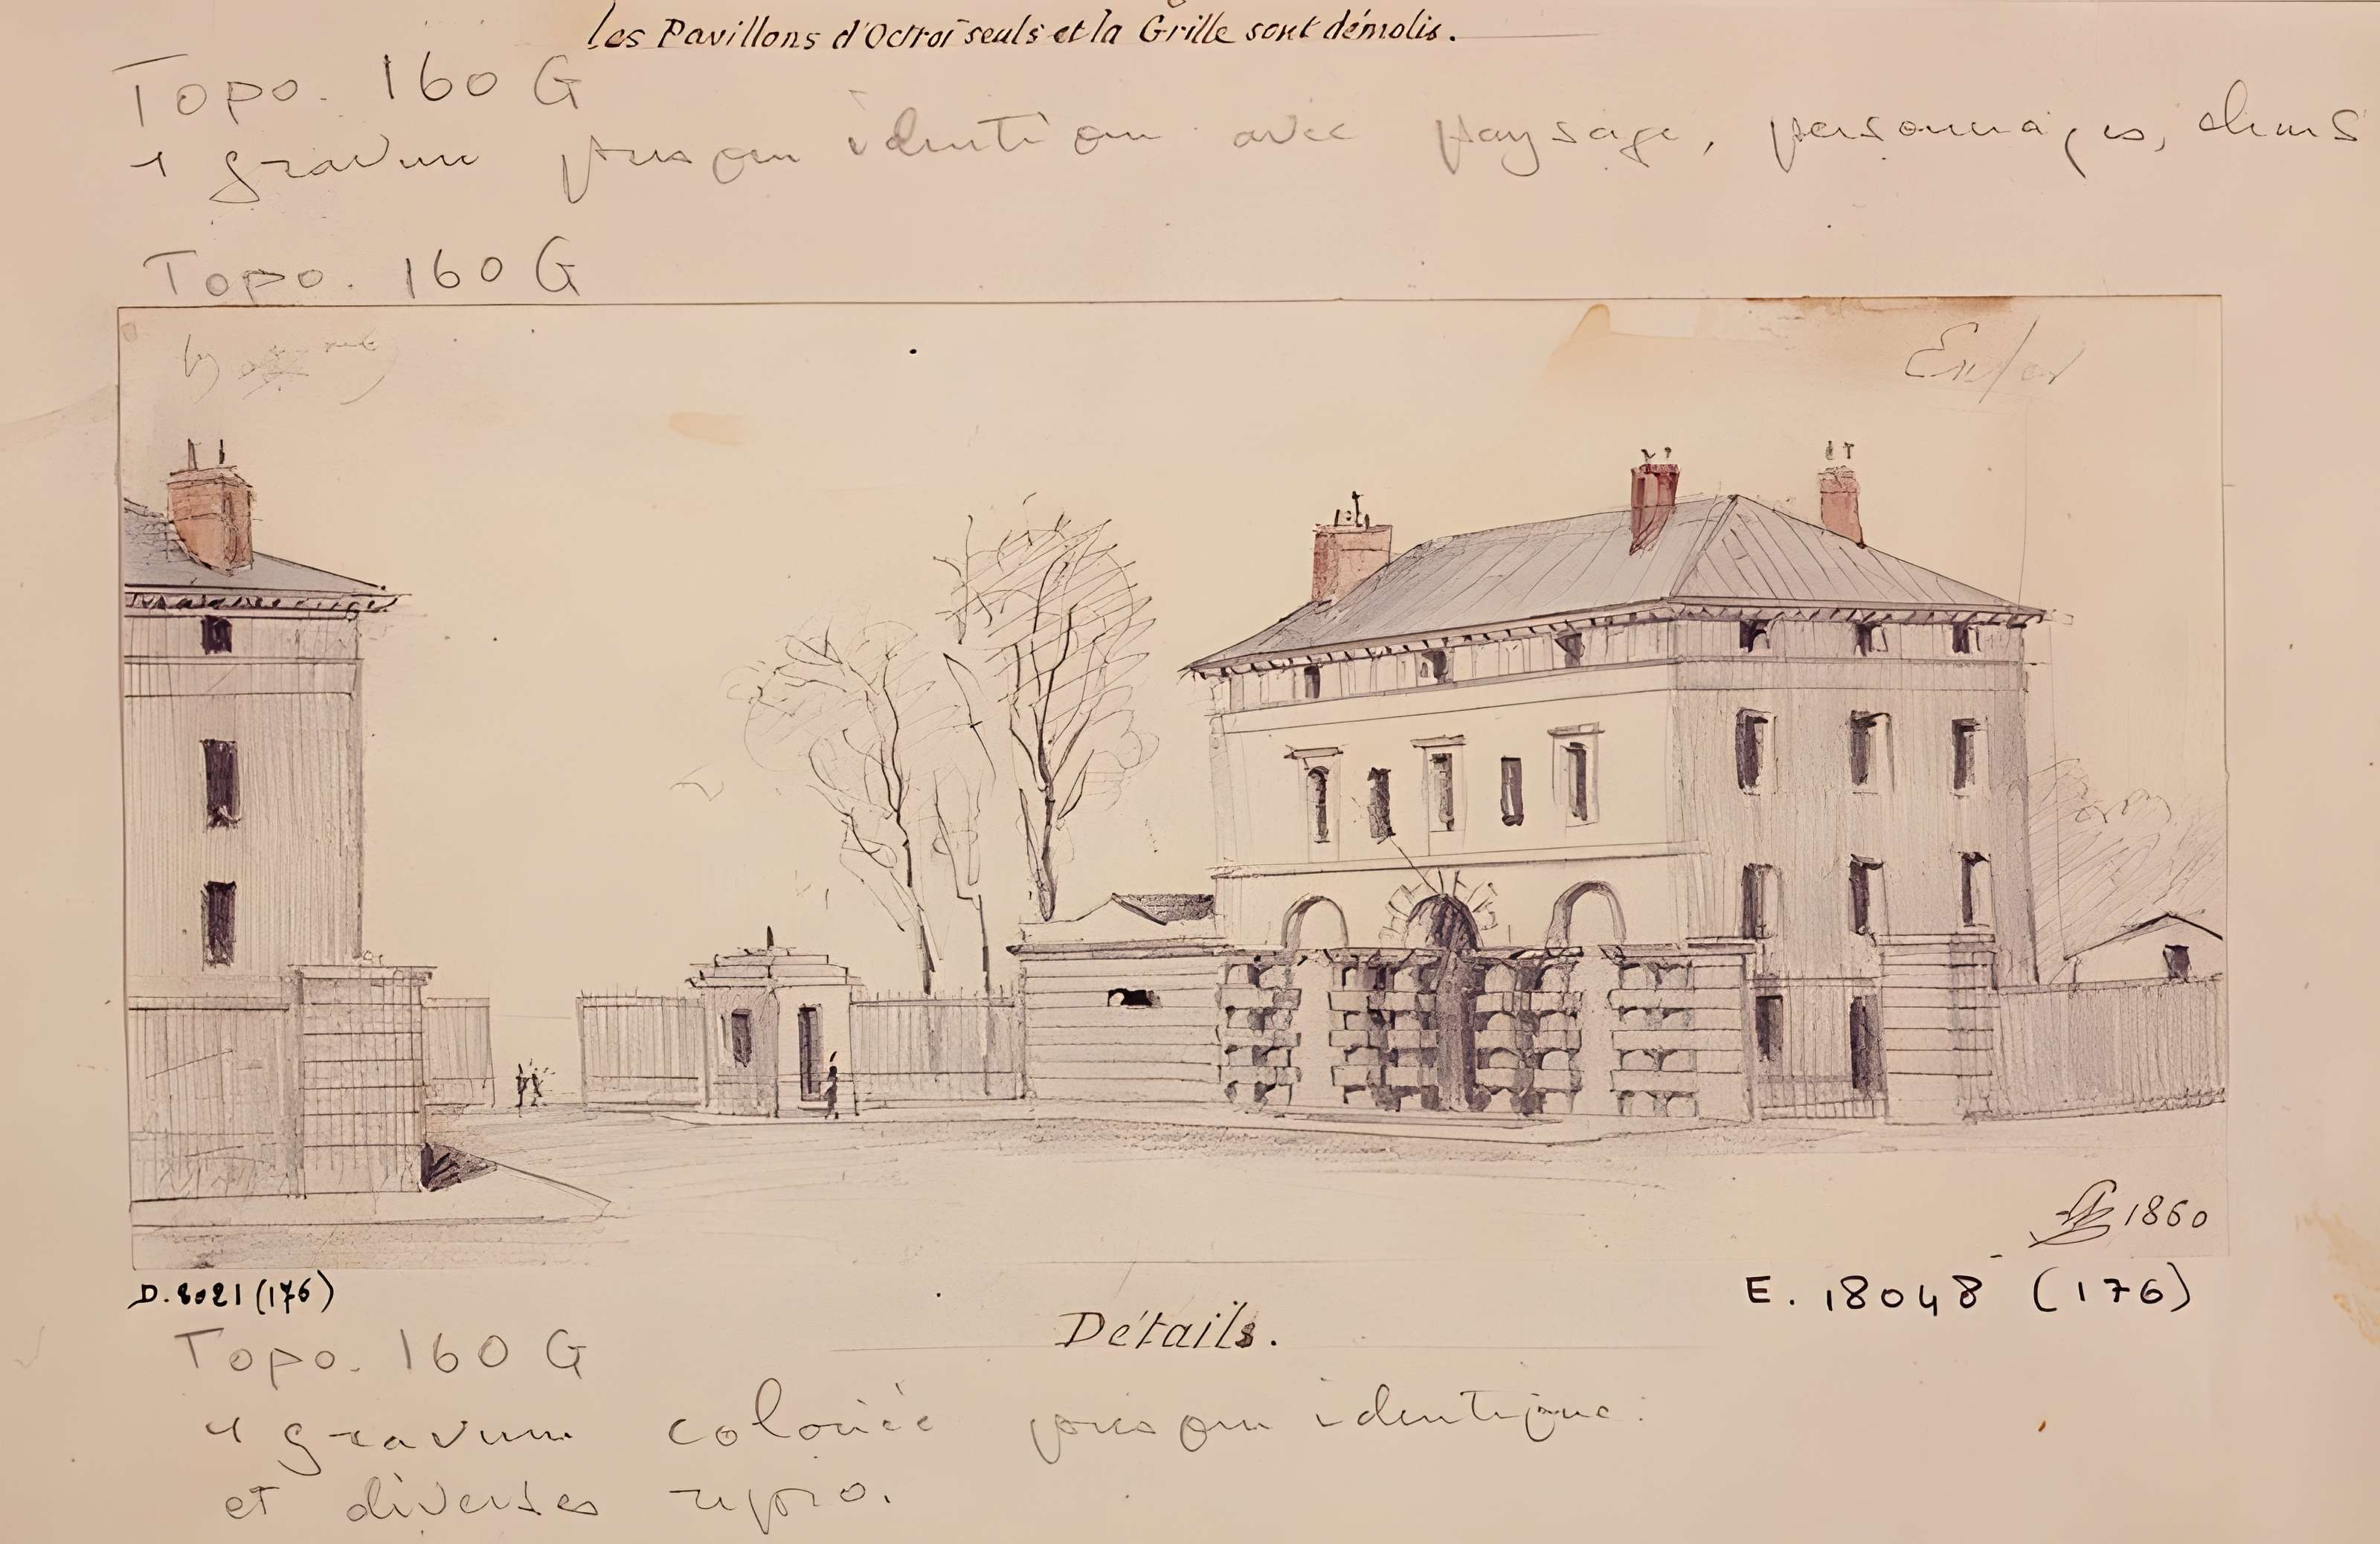 les Pavillons d'Octroi seuls et la Grille sont démolis.
Topo. 160 G
1 gravure presque identique avec paysage, personnages,
Topo. 160 G
Enfer
1860
D. 8021 (176)
E. 18048 (176)
Détails.
Topo. 160 G
1 gravure coloriée presque identique
et diverses repro.